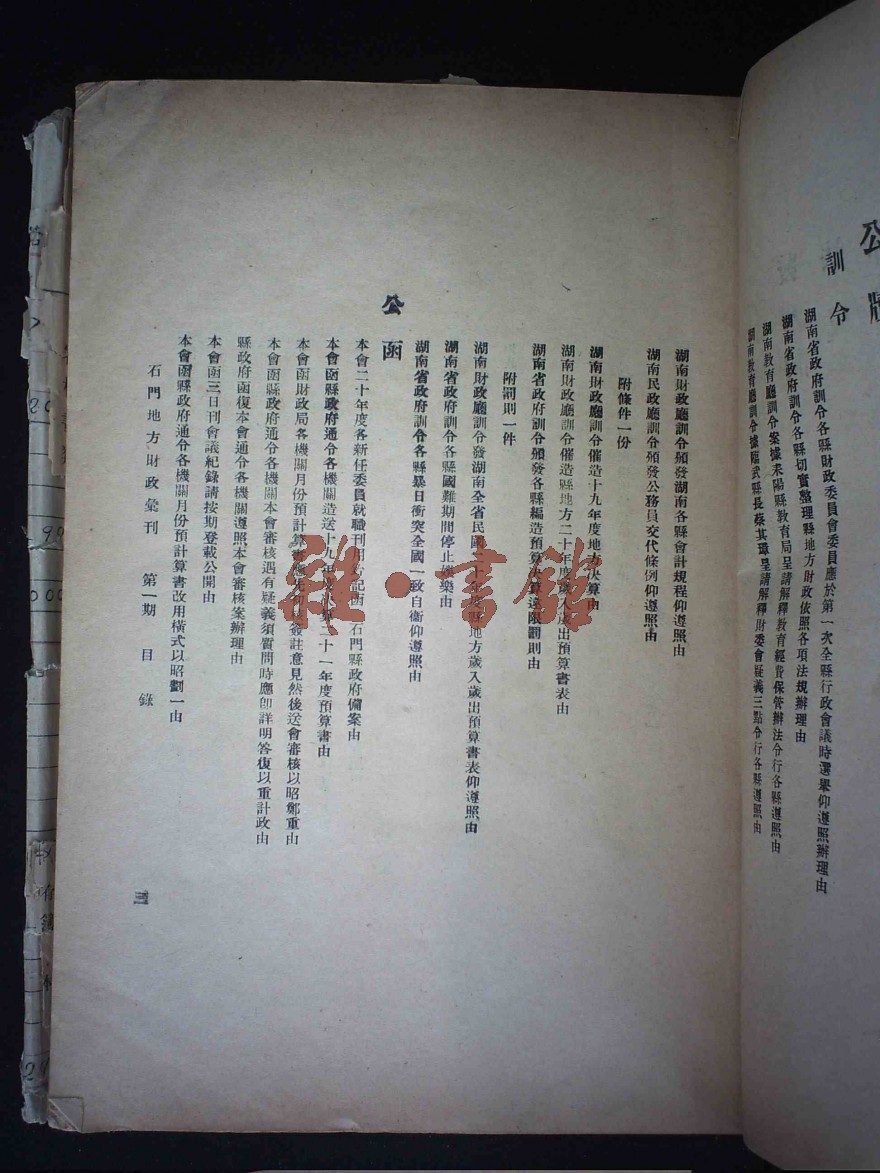 公
訓令
湖南省政府訓令各縣財政委員會委員應於第一次全縣行政會議時選舉仰遵照辦理由
湖南省政府訓令各縣切實整理縣地方財政依照各項法規辦理由
湖南教育廳訓令案據耒陽縣教育局呈請解釋教育經費保管辦法令行各縣遵照由
湖南教育廳訓令據臨武縣長蔡其環呈請解釋財委會疑義三點令行各縣遵照由
湖南財政廳訓令頒發湖南各縣會計規程仰遵照由
湖南民政廳訓令頒發公務員交代條例仰遵照由
附條件一份
湖南財政廳訓令催造十九年度地方決算由
湖南財政廳訓令催造縣地方二十年度歲入歲出預算書表由
湖南省政府訓令頒發各縣編造預算決算逾限罰則由
附罰則一件
湖南財政廳訓令發湖南全省民國二十年度縣地方歲入歲出預算書表仰遵照由
湖南省政府訓令各縣國難期間停止娛樂由
湖南省政府訓令各縣暴日衝突全國一致自衞仰遵照由
公函
本會二十年度各新任委員就職刊用鈐記函石門縣政府備案由
本會函縣政府通令各機關造送十九年度決算二十一年度預算書由
本會函財政局各機關月份預計算書應先行簽註意見然後送會審核以昭鄭重由
本會函縣政府通令各機關本會審核遇有疑義須質問時應卽詳明答復以重計政由
縣政府函復本會通令各機關遵照本會審核案辦理由
本會函三日刊會議紀錄請按期登載公開由
本會函縣政府通令各機關月份預計算書改用橫式以昭劃一由
石門地方財政彙刊 第一期 目錄
三
雜·書館